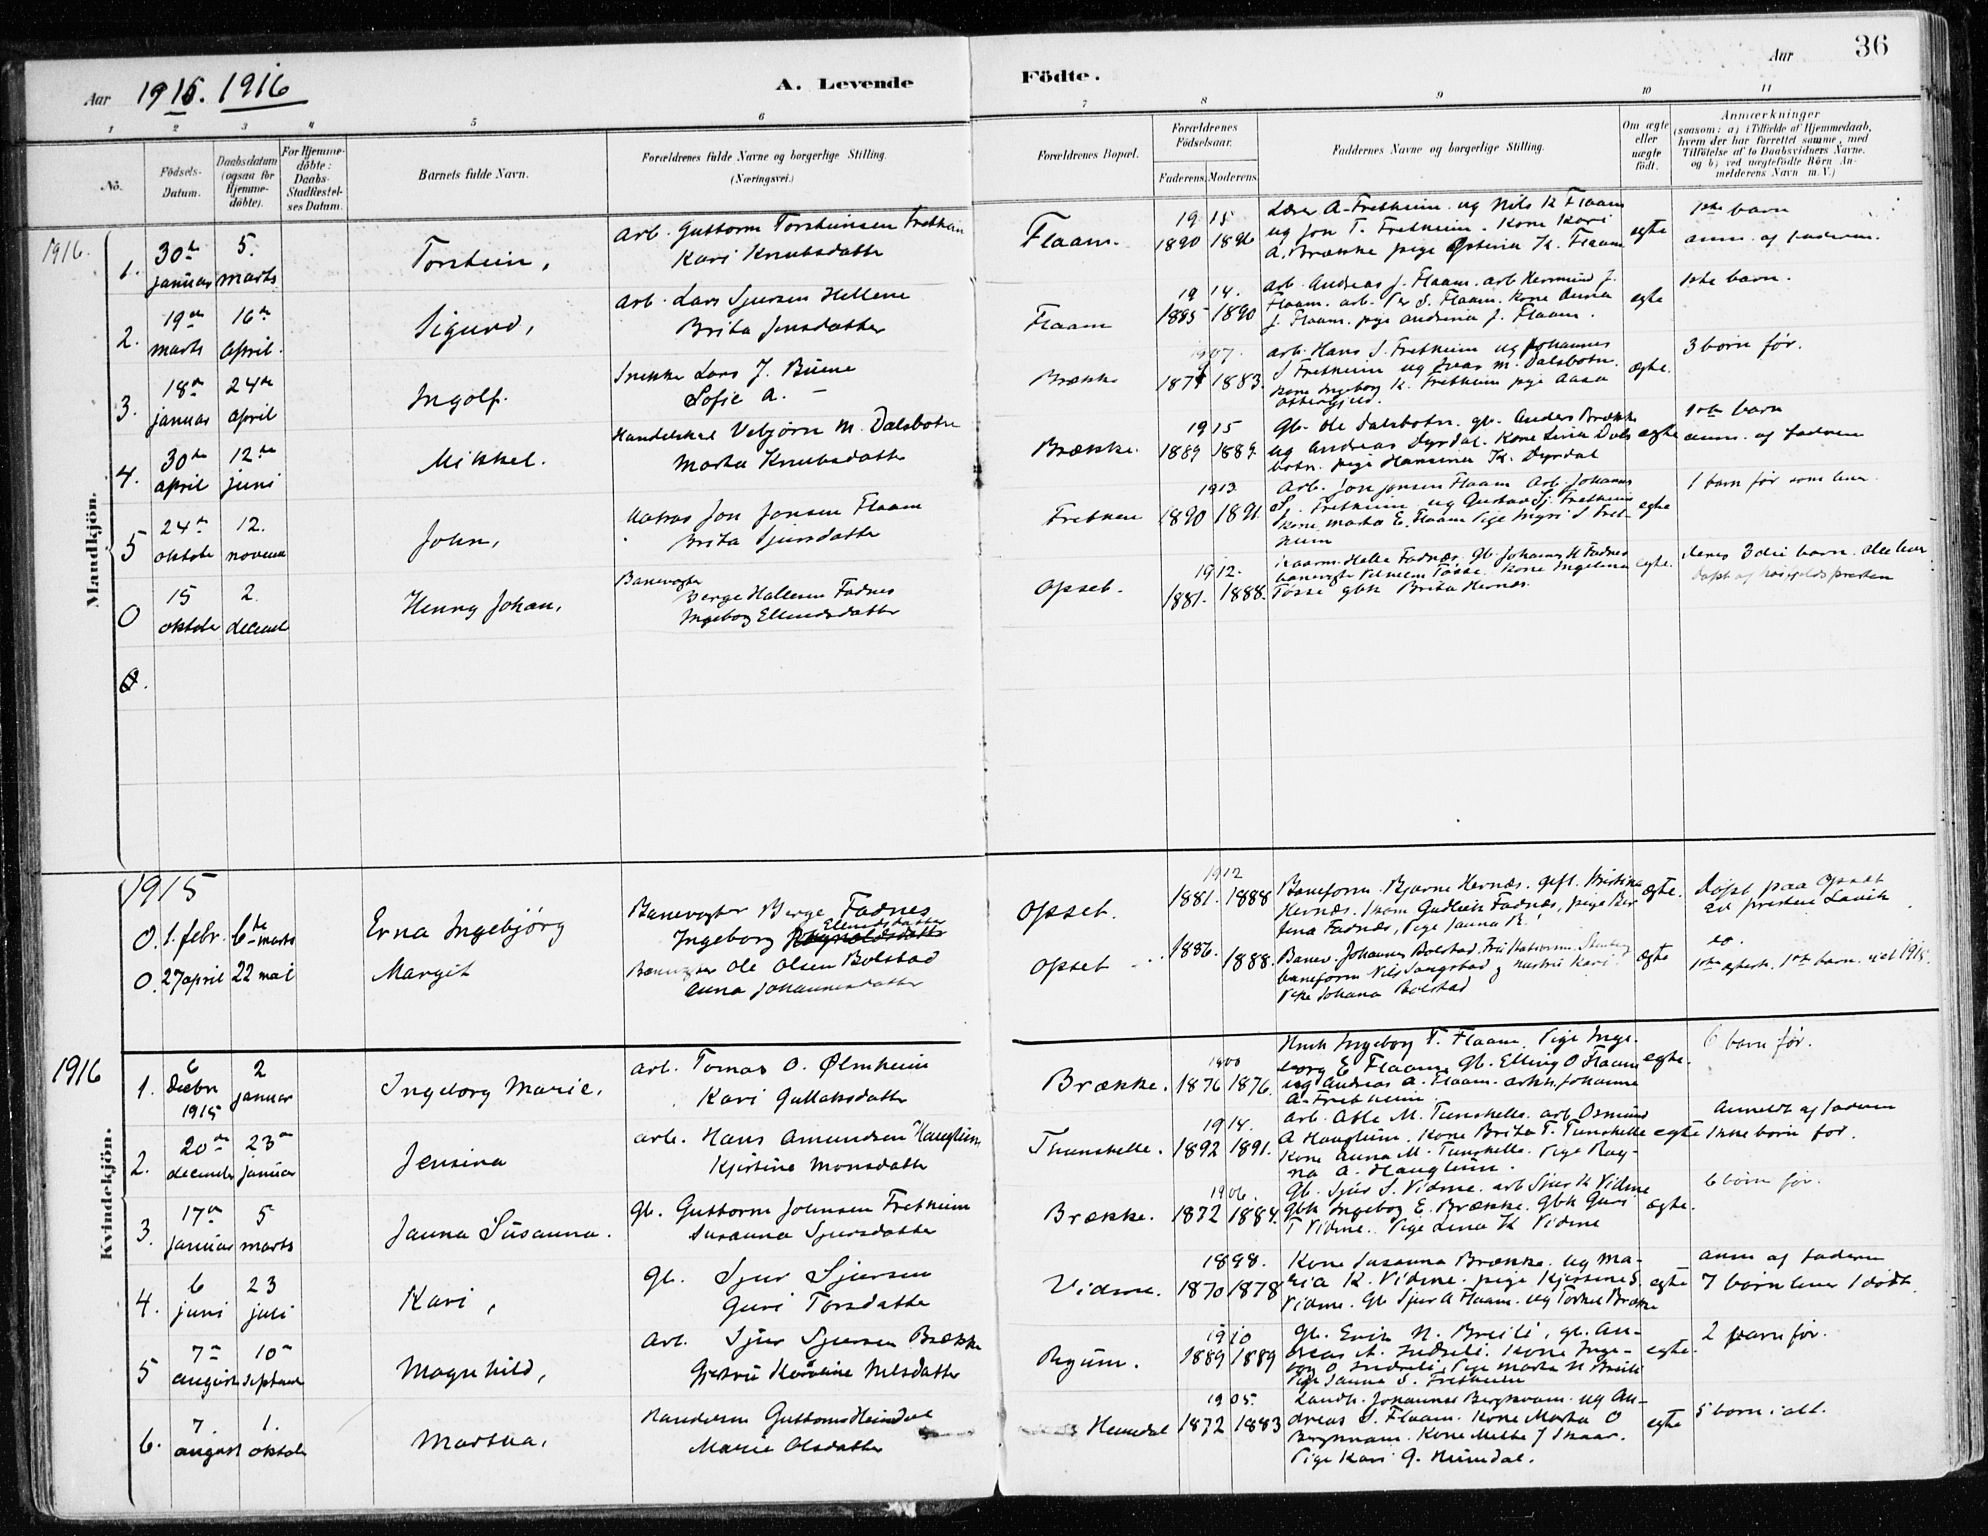 36
Aar 1915. 1916
A. Levende Födte.
Aar
1 2 3 4 5 6 7 8 9 10 11
No.
Födsels-Datum.
Daabsdatum (ogsaa for Hjemme-døbte).
For Hjemme-døbte: Daabs-Stadfæstel-ses Datum.
Barnets fulde Navn.
Forældrenes fulde Navne og borgerlige Stilling. (Næringsvei.)
Forældrenes Bopæl.
Forældrenes Födselsaar.
Faderens. Moderens.
Faddernes Navne og borgerlige Stilling.
Om ægte eller uægte født.
Anmærkninger
(saasom: a) i Tilfælde af Hjemmedaab, hvem der har forrettet samme, med Tilföielse af to Daabsvidners Navne. og b) ved uægtefödte Börn Anmelderens Navn m. V.)
Mandkjön.
1916.
1. 30te januar 5. marts
Torstein,
Arb. Guttorm Torsteinsen Fretheim
Kari Knutsdatter
Flaam.
1915
1890 1896
Lærer A. Fretheim og Nils K Flaam
og Jon T. Fretheim. Kone Kari
A. Brække pige Østina K. Flaam
egte
1ste barn
anm. af faderen.
2. 19de marts 16de april.
Sigurd,
Arb. Lars Sjursen Hellene
Brita Jensdatter
Flaam
1914.
1885 1890
arb. Andreas J. Flaam. arb Hermund J.
Flaam. arb. Per S. Flaam. Kone Anna
J. Flaam. pige Andrina J. Flaam.
egte
1ste barn.
3. 18de januar 24de april
Ingolf.
Snekke Lars J. Buene
Sofie A. —
Brække
1907.
1883.
arb. Hans S. Fretheim og Johannes
S Fretheim og M. Dalsbotn.
Kone Ingeborg K. Fretheim pige Aasa
egte.
3 børn før.
4. 30te april 12te juni
Mikkel.
Vebjørn M. Dalsbotn
Marta Knutsdatter
Brække.
1915
1889 1889.
Gb. Ole Dalsbotn. gb. Anders Brække
og Andreas Dyrdal. Kone Lina Dals
botn. pige Hansina K. Dyrdal
egte
1ste barn
anm. af faderen
5 24de oktober 12. november
John,
Jon Jonsen Flaam
Brita Sjursdatter
Fretheim
1913
1890 1891.
Arb. Jon Jonsen Flaam Arb. Johannes
S. Fretheim og Gustav Sj. Fretheim
Kone Marta E. Flaam Pige Ingri S Fret-
heim
egte
1 barn før som lever.
0 15 oktober 2. december
Henry Johan,
Banevogter
Berge Hallesen Fadnes
Ingeborg Ellendsdatter
Opset.
1912.
1881. 1888.
Helle Fadnæs. Gb. Johannes H Fadnes
banevogter Vilhelm Tøsse. Kone Ingelina
Tøsse gbk Brita Hernæs.
egte.
deres 3die barn. alle lever
døpt af
1915
0. 1. febr. 6te marts
Erna Ingebjörg
Banevogter Berge Fadnes
Ingeborg Ellendsdatter
Opset.
1912
1881. 1888
Baneform. Bjarne Hernæs. gift. Kristina
Hernæs. Gudleik Fadnæs, pige Ber
tina Fadnæs, Pige Janna R.
egte.
døpt paa Opset
ved presten Lavik
0. 27 april 22 mai
Margit
Banevogter Ole Olsen Bolstad
Anna Johannesdatter
Opset
1886. 1888.
Banev. Johannes Bolstad.
baneform Nils og hustru Kari
Pike Johana Bolstad
egte
do.
1ste barn.
Kvindekjön.
1916
1. 6 Decbr 1915 2 januar
Ingeborg Marie.
arb. Tomas O. Ølmheim
Kari Gullaksdatter
Brække.
1900
1876 1876.
Ingeborg T. Flaam. Pige Inge-
borg E Flaam. Gb. Elling O Flaam
og Andreas A. Flaam. Johanna
A. Fretheim
egte.
6 barn før.
2. 20de december 23de januar
Jensina
arb. Hans Amundsen Haugheim
Kjestine Monsdatter
Tunshelle.
1914.
1892 1891.
arb. Atle M. Tunshelle. arb Osmund
A Haugheim. Kone Brita T. Tunshelle
Kone Anna M. Tunshelle. Pige Rag-
na A. Haugheim.
egte
Anmeldt af faderen
Ikke børn før.
3. 17de januar 5 marts
Janna Susanna.
Gb. Guttorm Johnsen Fretheim
Susanna Sjursdatter
Brække.
1906.
1872 1884.
Gb. Sjur S. Vidme. arb Sjur K Vidme
Gbk Ingeborg E. Brække. Gbk Guri
T Vidme. Pige Lina K Vidme
egte.
6 børn før.
4. 6 juni 23 juli
Kari,
Gb. Sjur Sjursen
Guri Torsdatter
Vidme.
1898.
1870 1878
Kone Susanna Brække. og Ma-
ria K. Vidme. pige Kjerstine S.
Vidme. Gb Sjur A Flaam. og Torkel Brække
egte
anm af faderen
7 børn lever 1 dødt.
5 7de august 10de september
Magnhild,
Arb. Sjur Sjursen Brække
Gjertru Karoline Nelsdatter
Ryum.
1910
1889 1889
Gb. Erik N. Breili, gb. An-
dreas A. Indreli. Kone Inge-
borg O Indreli, Pige Marta N Breili
Pige Janna S. Fretheim
egte.
2 barn før.
6. 7. august 1. oktober
Martha,
Guttorm Heimdal
Marie Olsdatter
Heimdal
1905.
1872 1883
Landh. Johannes Bergkvam. og An-
dreas S. Flaam. Kone Marta O
Bergkvam. Kone Metta J Skaar.
Pige Kari G. Heimdal.
egte
5 born i alt.